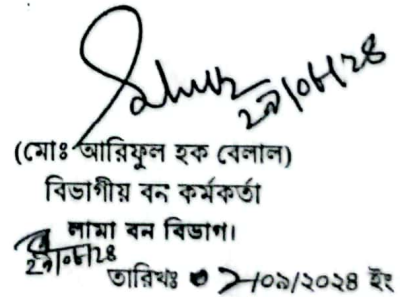 ২৯/০৮/২৪
(মোঃ আরিফুল হক বেলাল)
বিভাগীয় বন কর্মকর্তা
লামা বন বিভাগ।
২৯/০৮/২৪
তারিখঃ ০২/০৯/২০২৪ ইং